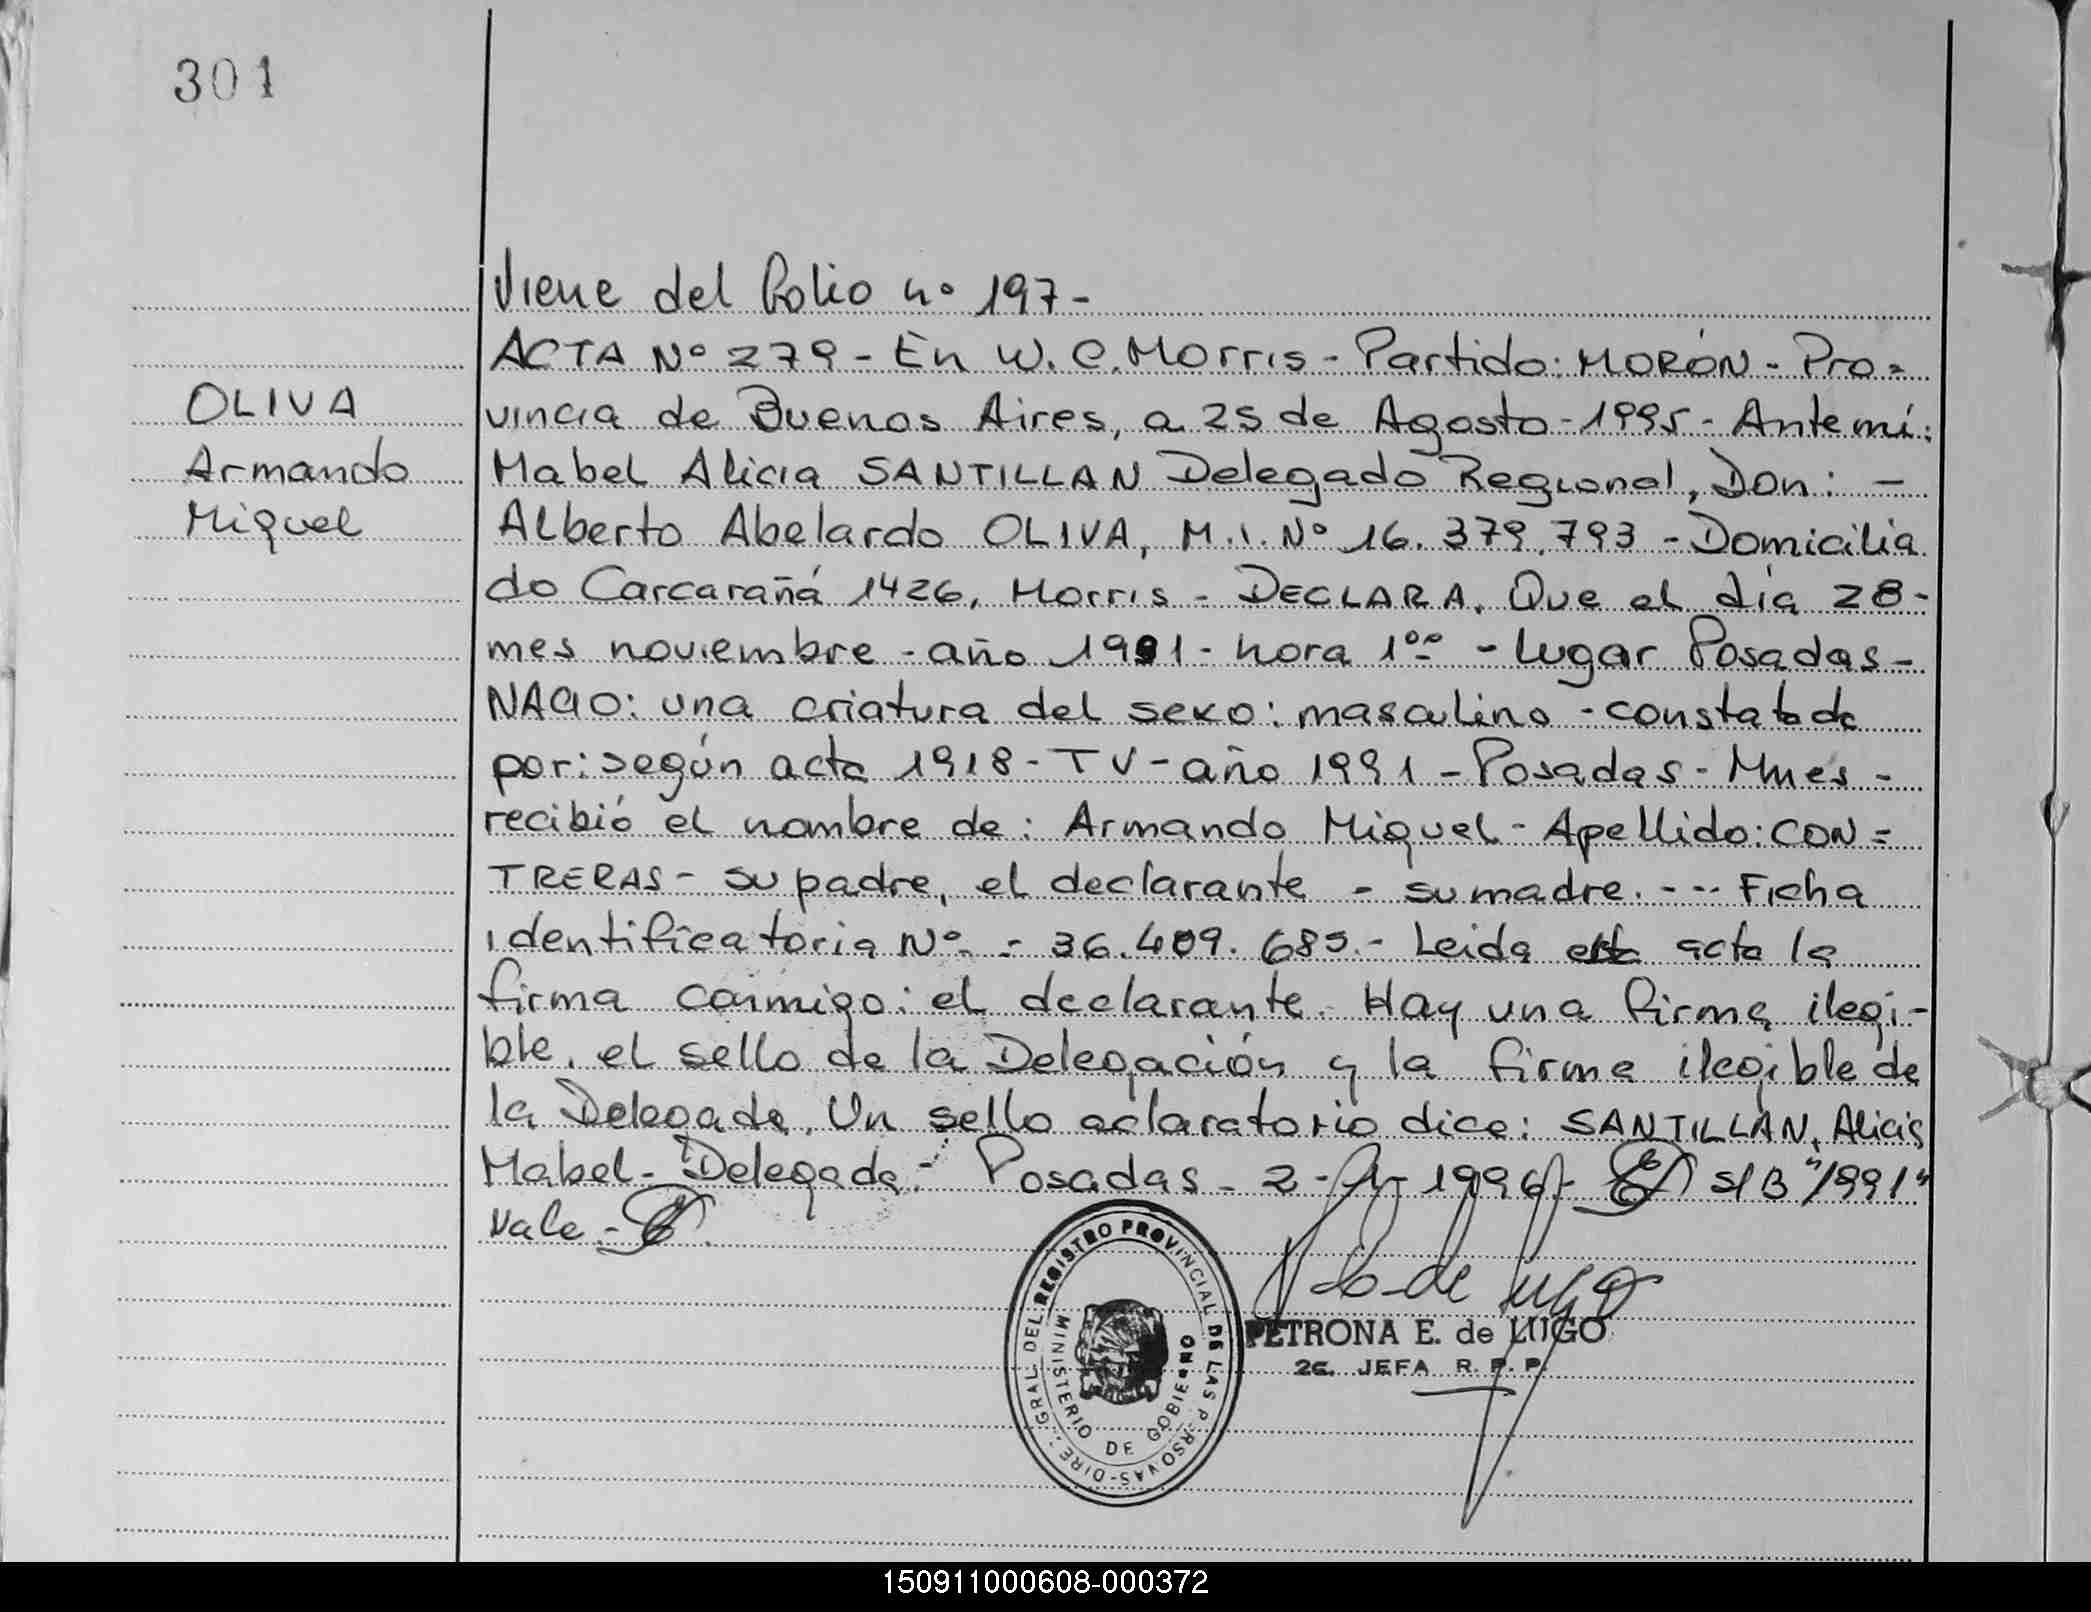 301
Viene del folio nº 197-
ACTA Nº 279 - En W. C. Morris - Partido: MORÓN - Pro=
OLIVA
vincia de Buenos Aires, a 25 de Agosto - 1995 - Ante mí:
Armando
Mabel Alicia SANTILLAN Delegado Regional, Don: -
Miguel
Alberto Abelardo OLIVA, M.I. Nº 16.379.793 - Domicilia
do Carcarañá 1426, Morris - DECLARA. Que el día 28-
mes noviembre - año 1991 - hora 1ºº - lugar Posadas -
NACIO: una criatura del sexo: masculino - constatada
por: según acta 1918 - T V - año 1991 - Posadas - Mnes -
recibió el nombre de: Armando Miguel - Apellido: CON=
TRERAS - su padre, el declarante - su madre. --- Ficha
identificatoria Nº - 36.409.685.- Leida esta acta la
firma conmigo: el declarante. Hay una firma ilegi-
ble, el sello de la Delegación y la firma ilegible de
la Delegada. Un sello aclaratorio dice: SANTILLAN, Alicia
Mabel - Delegada.- Posadas - 2 - 1996 - S/B "1991"
Vale.-
DIRE. GRAL. DEL REGISTRO PROVINCIAL DE LAS PERSONAS
MINISTERIO DE GOBIERNO
PETRONA E. de LUGO
2a. JEFA R. P. P.
150911000608-000372